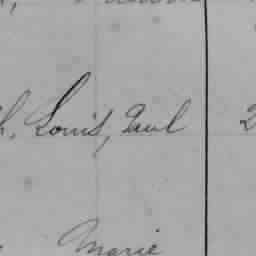 h, Louis, Paul 2
Marie